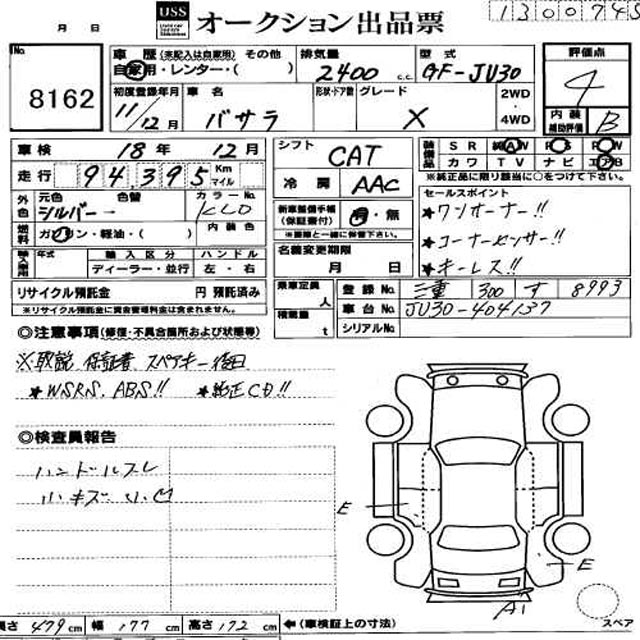 USS オークション出品票
月 日
1300745
No. 8162
車歴 (未記入は自家用) その他
自家用・レンター・( )
排気量 2400 c.c.
型式 GF-JU30
評価点 4
初度登録年月 11/12月
車名 バサラ
形状・ドア数
グレード X
2WD・4WD
内装補助評価 B
車検 18年 12月
走行 94,395 Km マイル
シフト CAT
冷房 AAC
装備品 SR 純AW PS PW
カワ TV ナビ エアB
※純正品に限り該当に○をつけて下さい。
外色 元色 シルバー
色替
カラーNo. KLO
燃料 ガソリン・軽油・( )
内装色
新車整備手帳(保証書付) 有・無
※書類と一緒に保管下さい。
セールスポイント
★ワンオーナー!!
★コーナーセンサー!!
★キーレス!!
輸入車用 年式 輸入区分 ハンドル
ディーラー・並行 左・右
名義変更期限
月 日
リサイクル預託金 円 預託済み
※リサイクル預託金に資金管理料金は含まれません。
乗車定員 人
積載量 t
登録No. 三重 300 す 8993
車台No. JU30-404137
シリアルNo.
◎注意事項(修復・不具合箇所および状態等)
※取説 保証書 スペアキー後日
★WSRS. ABS!! ★純正CD!!
◎検査員報告
ハンドルスレ
小キズ
E
E
A1
スペア
長さ 479cm 幅 177cm 高さ 172cm ←(車検証上の寸法)